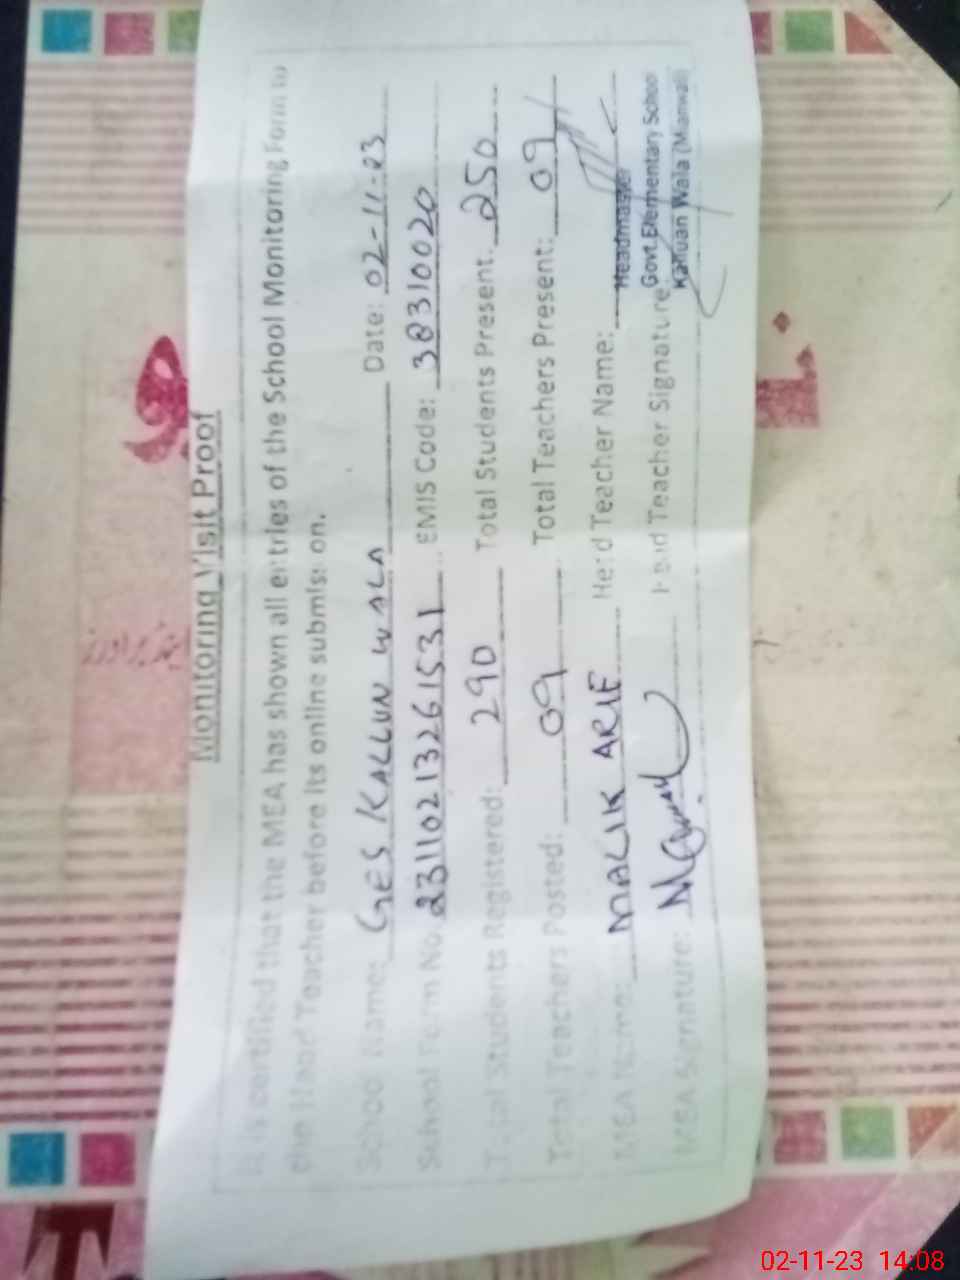 Monitoring Visit Proof
It is certified that the MEA has shown all entries of the School Monitoring Form to
the Head Teacher before its online submission.
School Name: GES KALLUN WALA Date: 02-11-23
School Form No. 23110213261531 EMIS Code: 38310020
Total Students Registered: 290 Total Students Present: 250
Total Teachers Posted: 09 Total Teachers Present: 09
MEA Name: MALIK ARIF Head Teacher Name:
Headmaster
Govt. Elementary School
Wala
MEA Signature: Head Teacher Signature:
برادرز
02-11-23 14:08